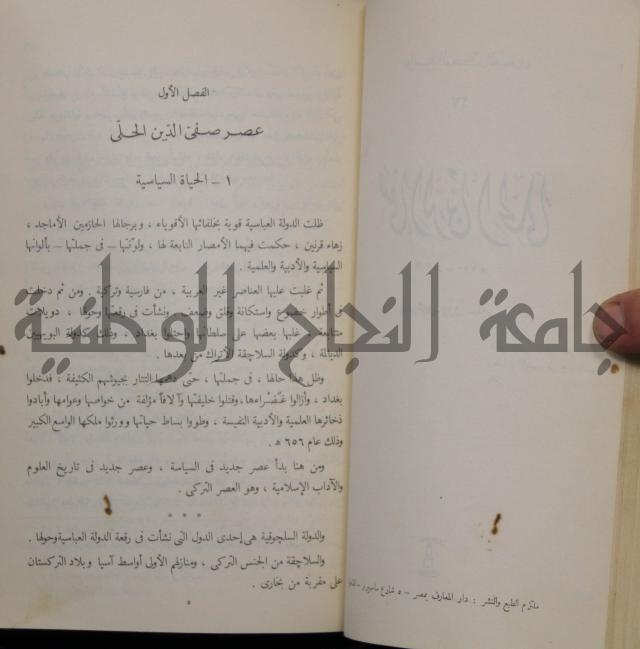 الفصل الأول
عصر صفى الدّين الحلّى
١ – الحياة السياسية
ظلت الدولة العباسية قوية بخلفائها الأقوياء ، وبرجالها الحازمين الأماجد ،
زهاء قرنين ، حكمت فيهما الأمصار التابعة لها ، ولوّنتها – فى جملتها – بألوانها
السياسية والأدبية والعلمية .
ثم غلبت عليها العناصر غير العربية ، من فارسية وتركية . ومن ثم دخلت
فى أطوار خضوع واستكانة وقلق وضعف . ونشأت فى رقعتها وحولها ، دويلات
متتابعة ، غلبها بعضها على سلطانها واحتلوا بغداد . وظل كدولة البويهيين
الديالمة ، وكدولة السلاجقة الأتراك من بعدها .
وظل هذا حالها ، فى جملتها ، حتى دهمها التتار بجيوشهم الكثيفة ، فدخلوا
بغداد ، وأزالوا خضراءها، وقتلوا خليفتها وآلافاً مؤلفة من خواصها وعوامها وأبادوا
ذخائرها العلمية والأدبية النفيسة ، وطووا بساط حياتها وورثوا ملكها الواسع الكبير
وذلك عام ٦٥٦ ه .
ومن هنا بدأ عصر جديد فى السياسة ، وعصر جديد فى تاريخ العلوم
والآداب الإسلامية ، وهو العصر التركى .
* * *
والدولة السلجوقية هى إحدى الدول التى نشأت فى رقعة الدولة العباسية وحولها .
والسلاجقة من الجنس التركى ، ومنازلهم الأولى أواسط آسيا وبلاد التركستان
على مقربة من بخارى .
ملتزم الطبع والنشر : دار المعارف بمصر – ٥ شارع ماسبيرو –
جامعة النجاح الوطنية